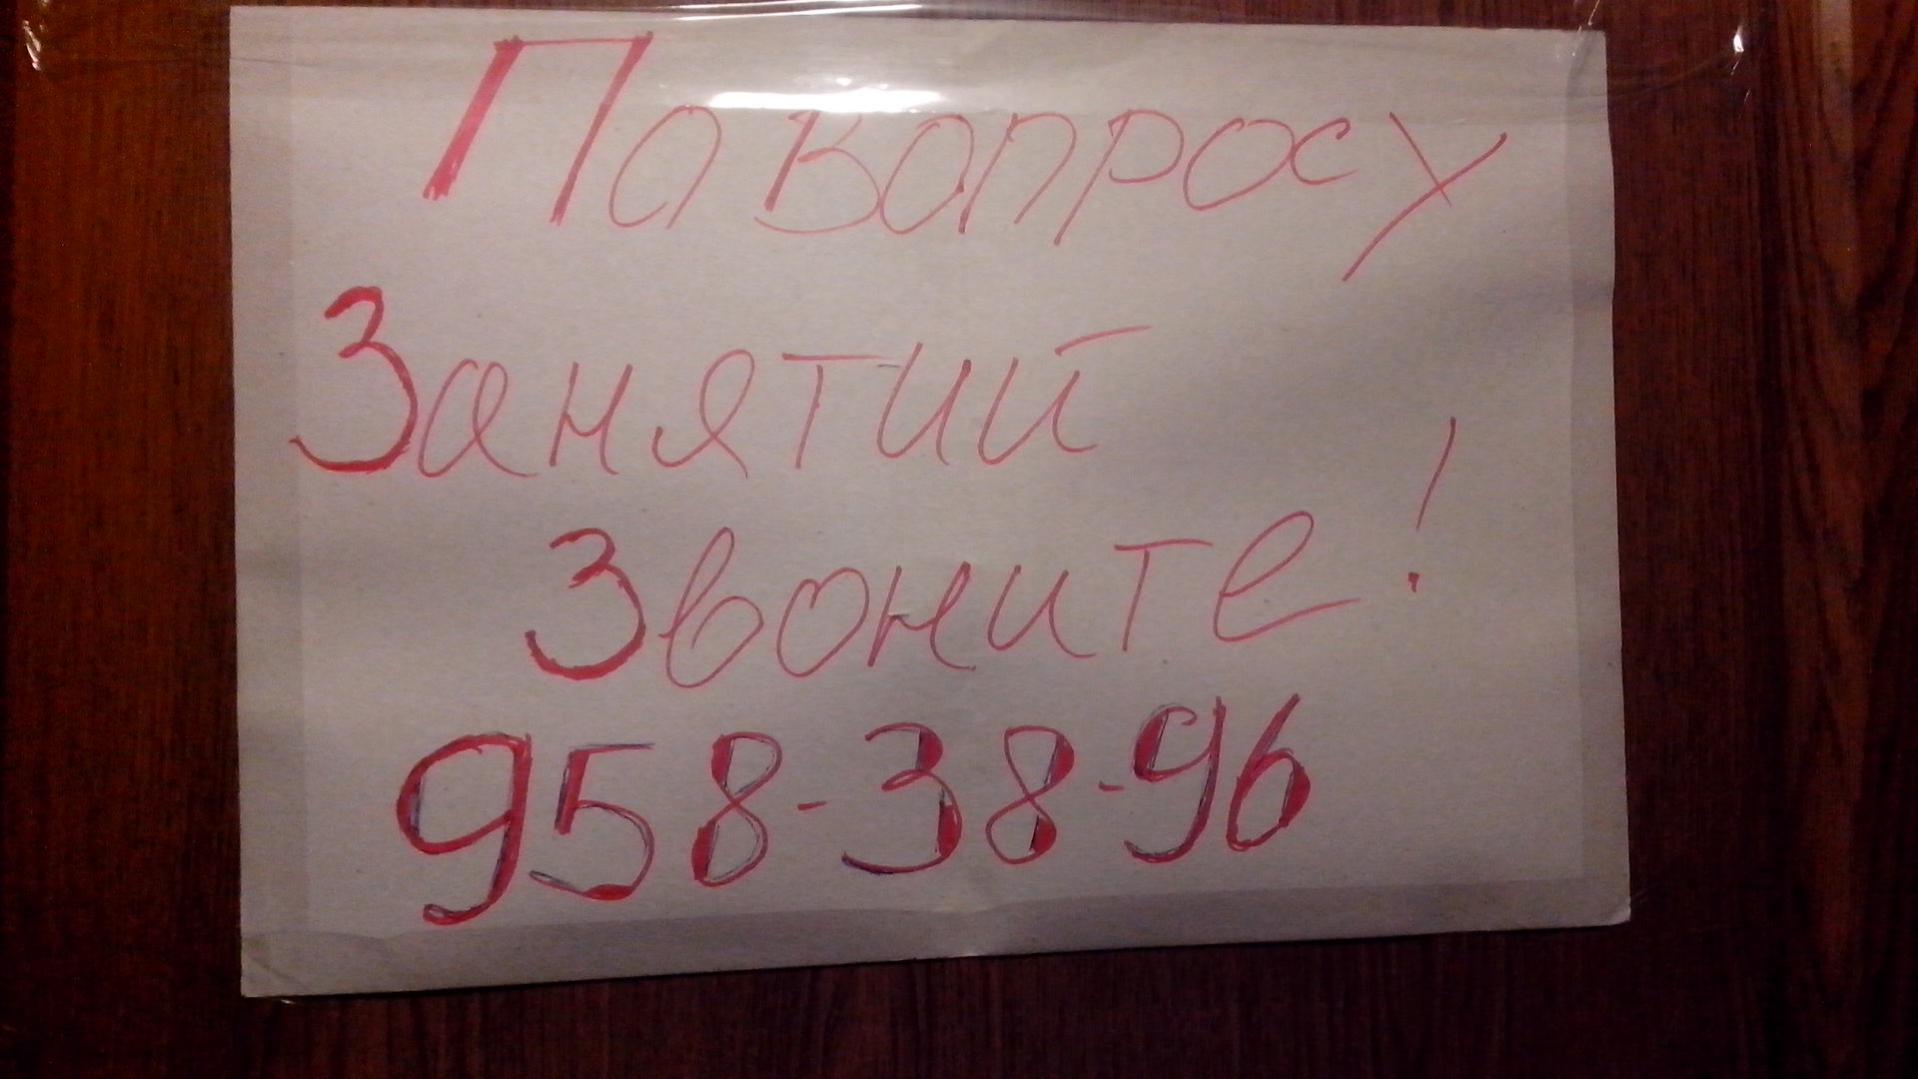 По вопросу
Занятий
Звоните!
958-38-96